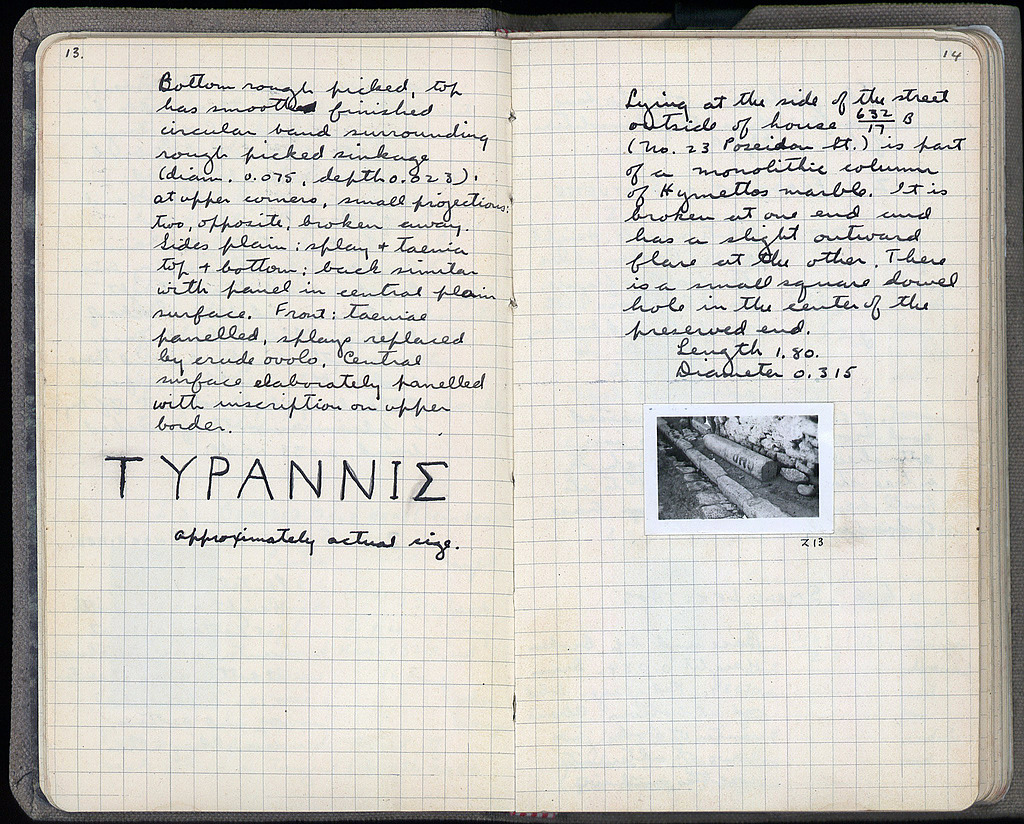 13.
Bottom rough picked, top
has smooth finished
circular band surrounding
rough picked sinkage
(diam. 0.075, depth 0.023);
at upper corners, small projections:
two, opposite, broken away.
Sides plain: splay + taenia
top + bottom; back similar
with panel in central plain
surface. Front: taeniae
panelled, splays replaced
by crude ovolo. Central
surface elaborately panelled
with inscription on upper
border.
ΤΥΡΑΝΝΙΣ
approximately actual size.
14
Lying at the side of the street
outside of house 632/17 B
(No. 23 Poseidon St.) is part
of a monolithic column
of Hymettos marble. It is
broken at one end and
has a slight outward
flare at the other. There
is a small square dowel
hole in the center of the
preserved end.
Length 1.80.
Diameter 0.315
Z13